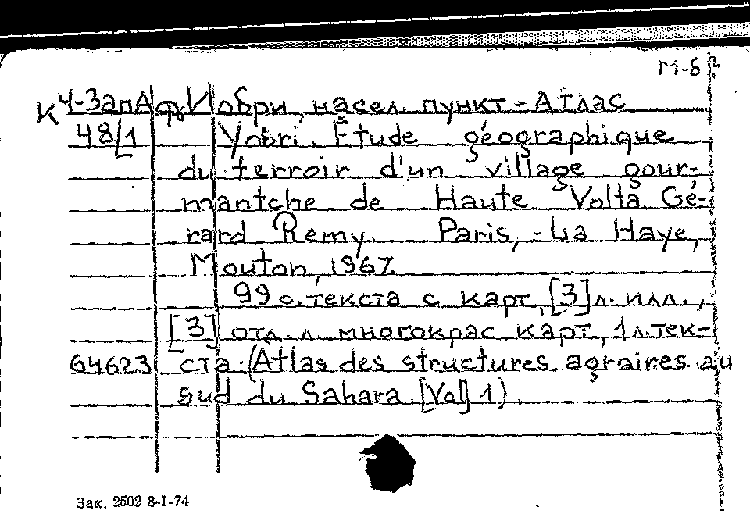 М-Б
К Ч-ЗапАф Иобри, насел. пункт - Атлас
48/1 Yobri. Étude géographique
du terroir d'un village gour-
mantche de Haute Volta. Gé-
rard Remy. Paris, - La Haye,
Mouton, 1967.
99 с. текста с карт, [3] л. илл.,
[3] отд. л. многокрас карт, 1 л. тек-
64623 ста. (Atlas des structures agraires au
sud du Sahara [Vol] 1)
Зак. 2502 8-I-74